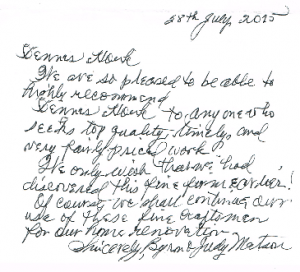 28th July 2015
Dennis
We are so pleased to be able to
highly recommend
Dennis to anyone who
seeks top quality, timely, and
very fairly priced work.
We only wish that we had
discovered this fine firm earlier!
Of course we shall continue our
use of these fine craftsmen
for our home renovation
Sincerely, Byron & Judy Matson